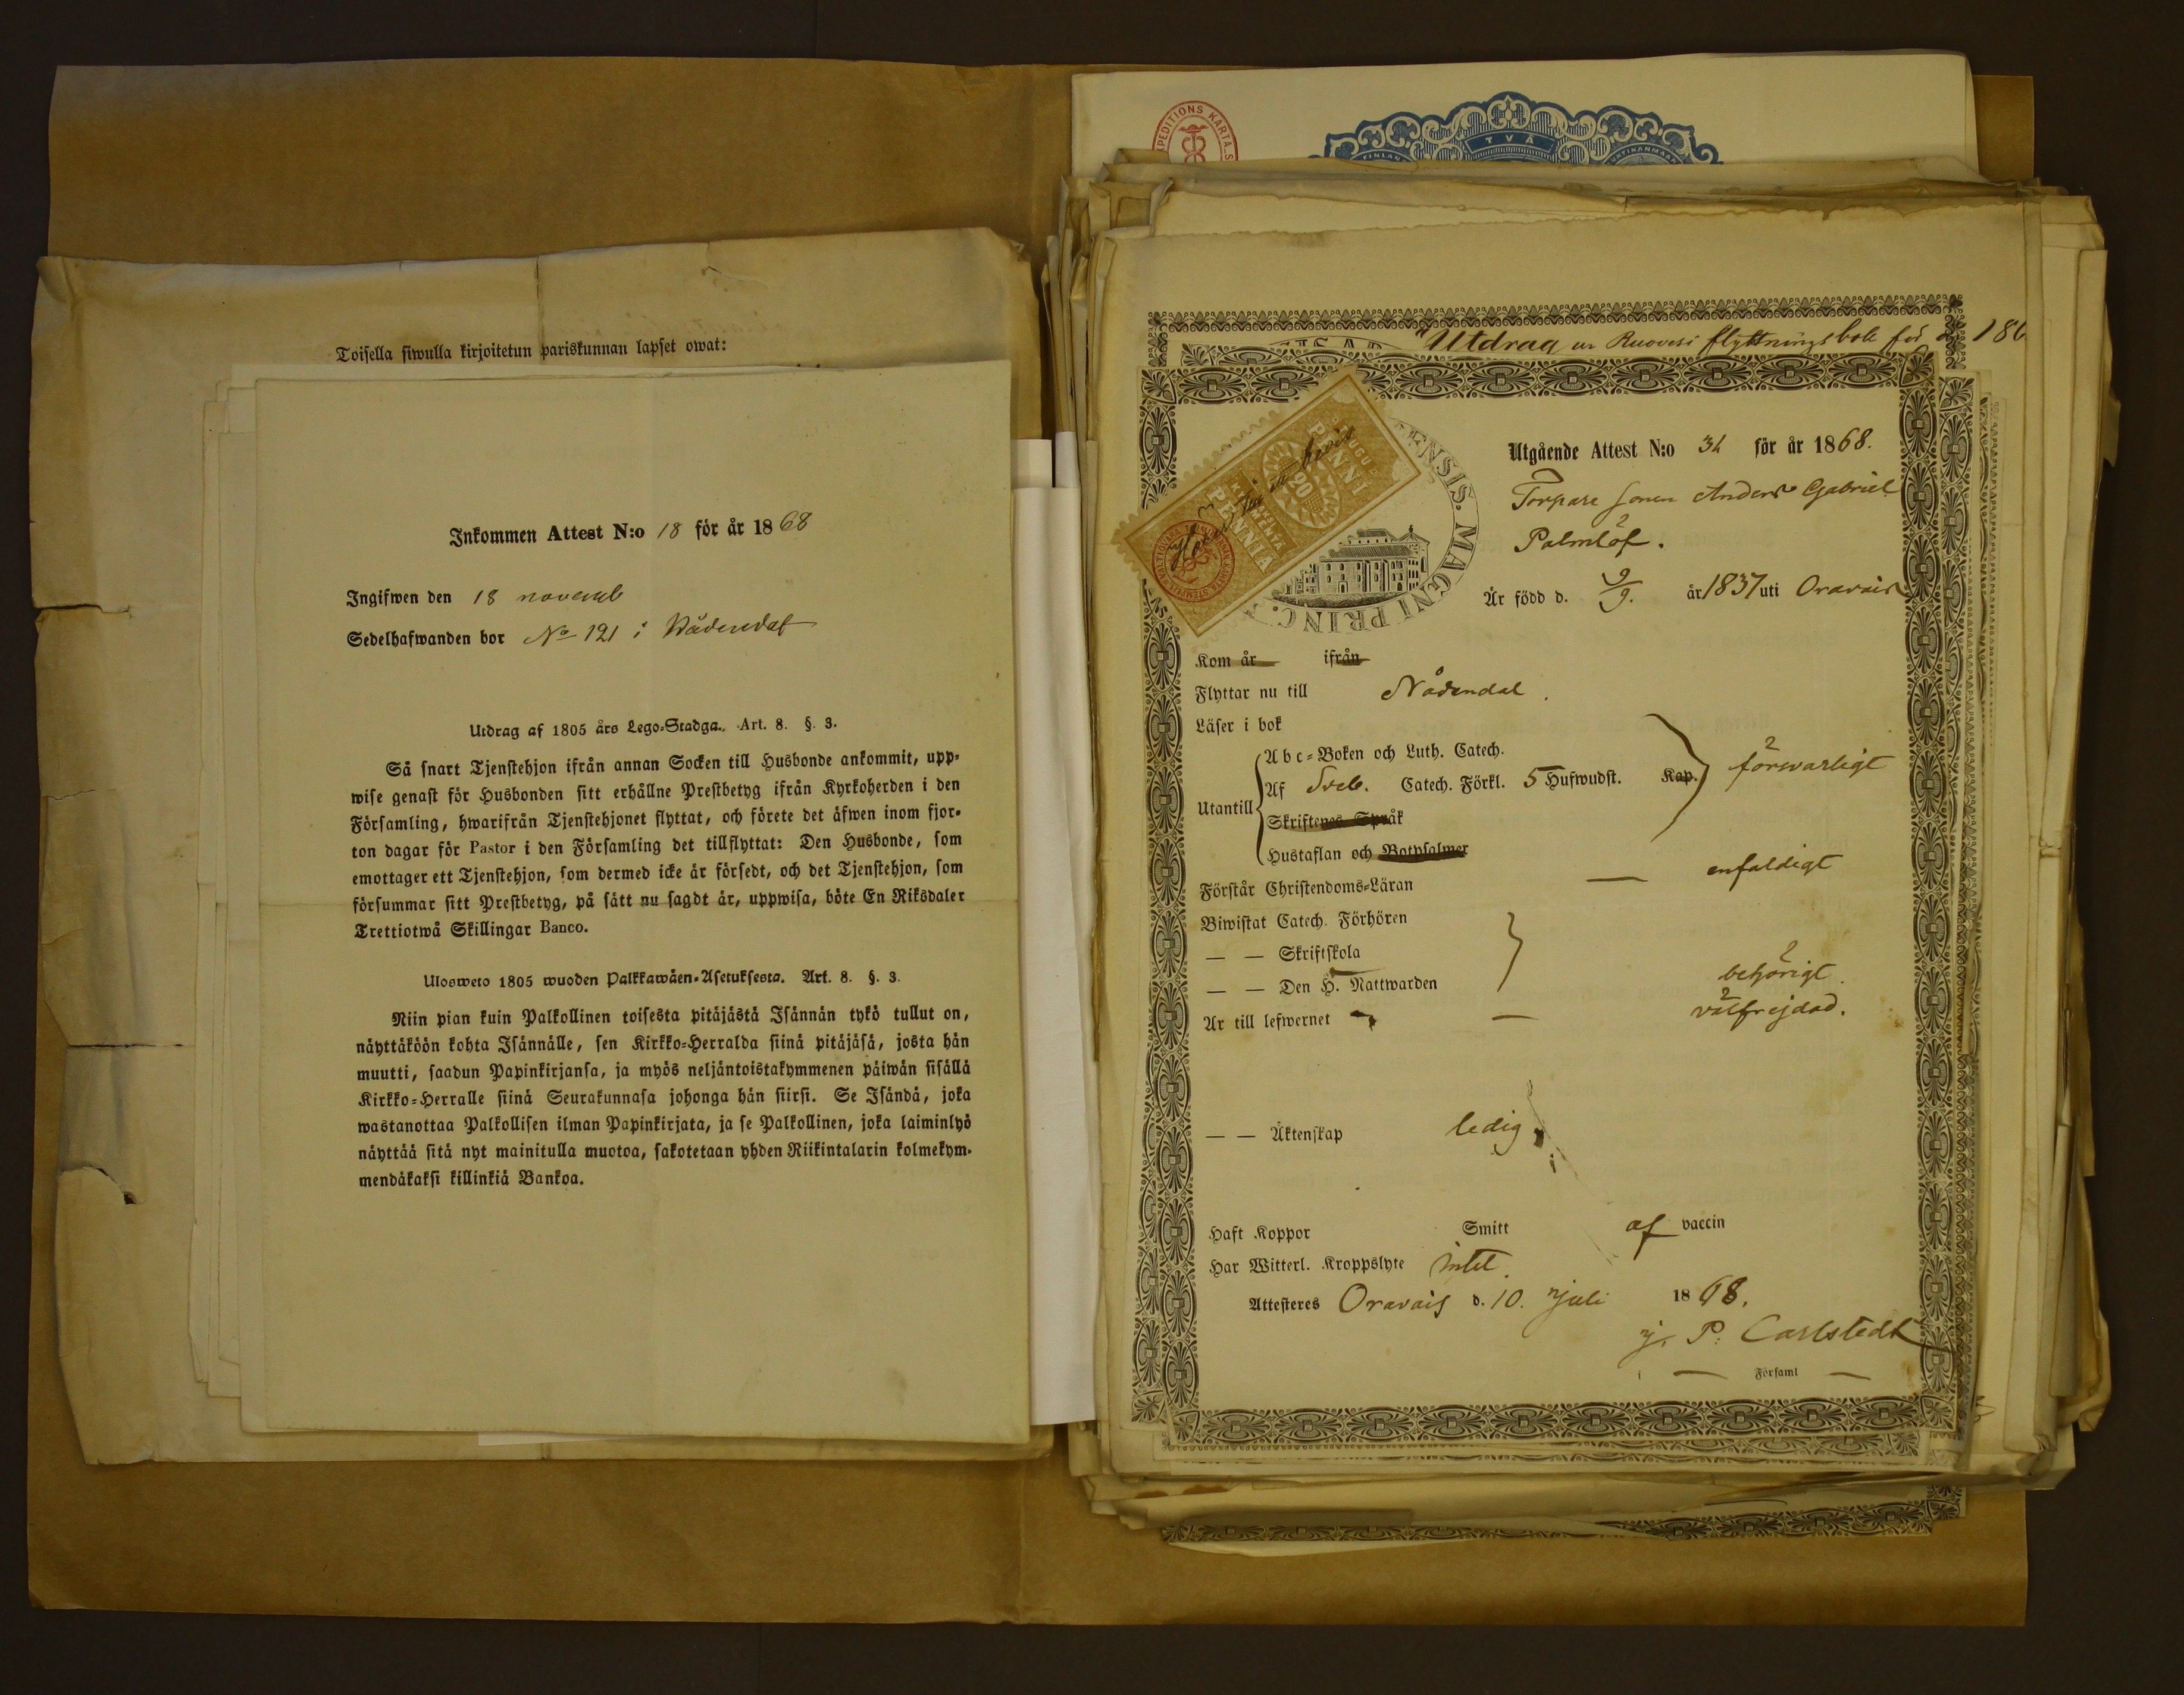 Toisella siwulla kirjoitetun pariskunnan lapset owat:
Inkommen Attest N:o 18 för år 1868
Ingifwen den 18 novemb
Sedelhafwanden bor No 121 i Nådendal
Utdrag af 1805 års Lego-Stadga. Art. 8. §. 3.
Så snart Tjenstehjon ifrån annan Socken till Husbonde ankommit, upp-
wise genast för Husbonden sitt erhållne Prestbetyg ifrån Kyrkoherden i den
Församling, hwarifrån Tjenstehjonet flyttat, och förete det äfwen inom fjor-
ton dagar för Pastor i den Församling det tillflyttat: Den Husbonde, som
emottager ett Tjenstehjon, som dermed icke är försedt, och det Tjenstehjon, som
försummar sitt Prestbetyg, på sätt nu sagdt är, uppwisa, böte En Riksdaler
Trettiotwå Skillingar Banco.
Ulosweto 1805 wuoden Palkkawäen-Asetuksesta. Art. 8. §. 3.
Niin pian kuin Palkollinen toisesta pitäjästä Isännän tykö tullut on,
näyttäköön kohta Isännälle, sen Kirkko-Herralda siinä pitäjäsä, josta hän
muutti, saadun Papinkirjansa, ja myös neljäntoistakymmenen päiwän sisällä
Kirkko-Herralle siinä Seurakunnasa johonga hän siirsi. Se Isändä, joka
wastanottaa Palkollisen ilman Papinkirjata, ja se Palkollinen, joka laiminlyö
näyttää sitä nyt mainitulla muotoa, sakotetaan yhden Riikintalarin kolmekym-
mendäkaksi killinkiä Bankoa.
PEDITIONS KARTA.S
TVÅ
FINLAN
Utdrag ur Ruovesi flyttningsbok för år 186
20
PENNI
PENNIÄ
ENSIS. MAGNI PRINC.
Utgående Attest N:o 34 för år 1868.
Torpare sonen Anders Gabriel
Palmlöf.
Är född d. 9/9. år 1837 uti Oravais
Kom år ifrån
Flyttar nu till Nådendal.
Läser i bok
Abc-Boken och Luth. Catech.
Utantill Af Sveb. Catech. Förkl. 5 Hufwudst. Kap. försvarligt
Skriftenes Språk
Hustaflan och Botpsalmer
Förstår Christendoms-Läran — enfaldigt
Biwistat Catech. Förhören
— — Skriftskola
— — Den H. Nattwarden behörigt.
Är till lefwernet — välfrejdad.
— — Äktenskap ledig
Haft Koppor Smitt af vaccin
Har Witterl. Kroppslyte intet.
Attesteres Oravais d. 10. juli 1868.
J. P. Carlstedt
i — Församl —